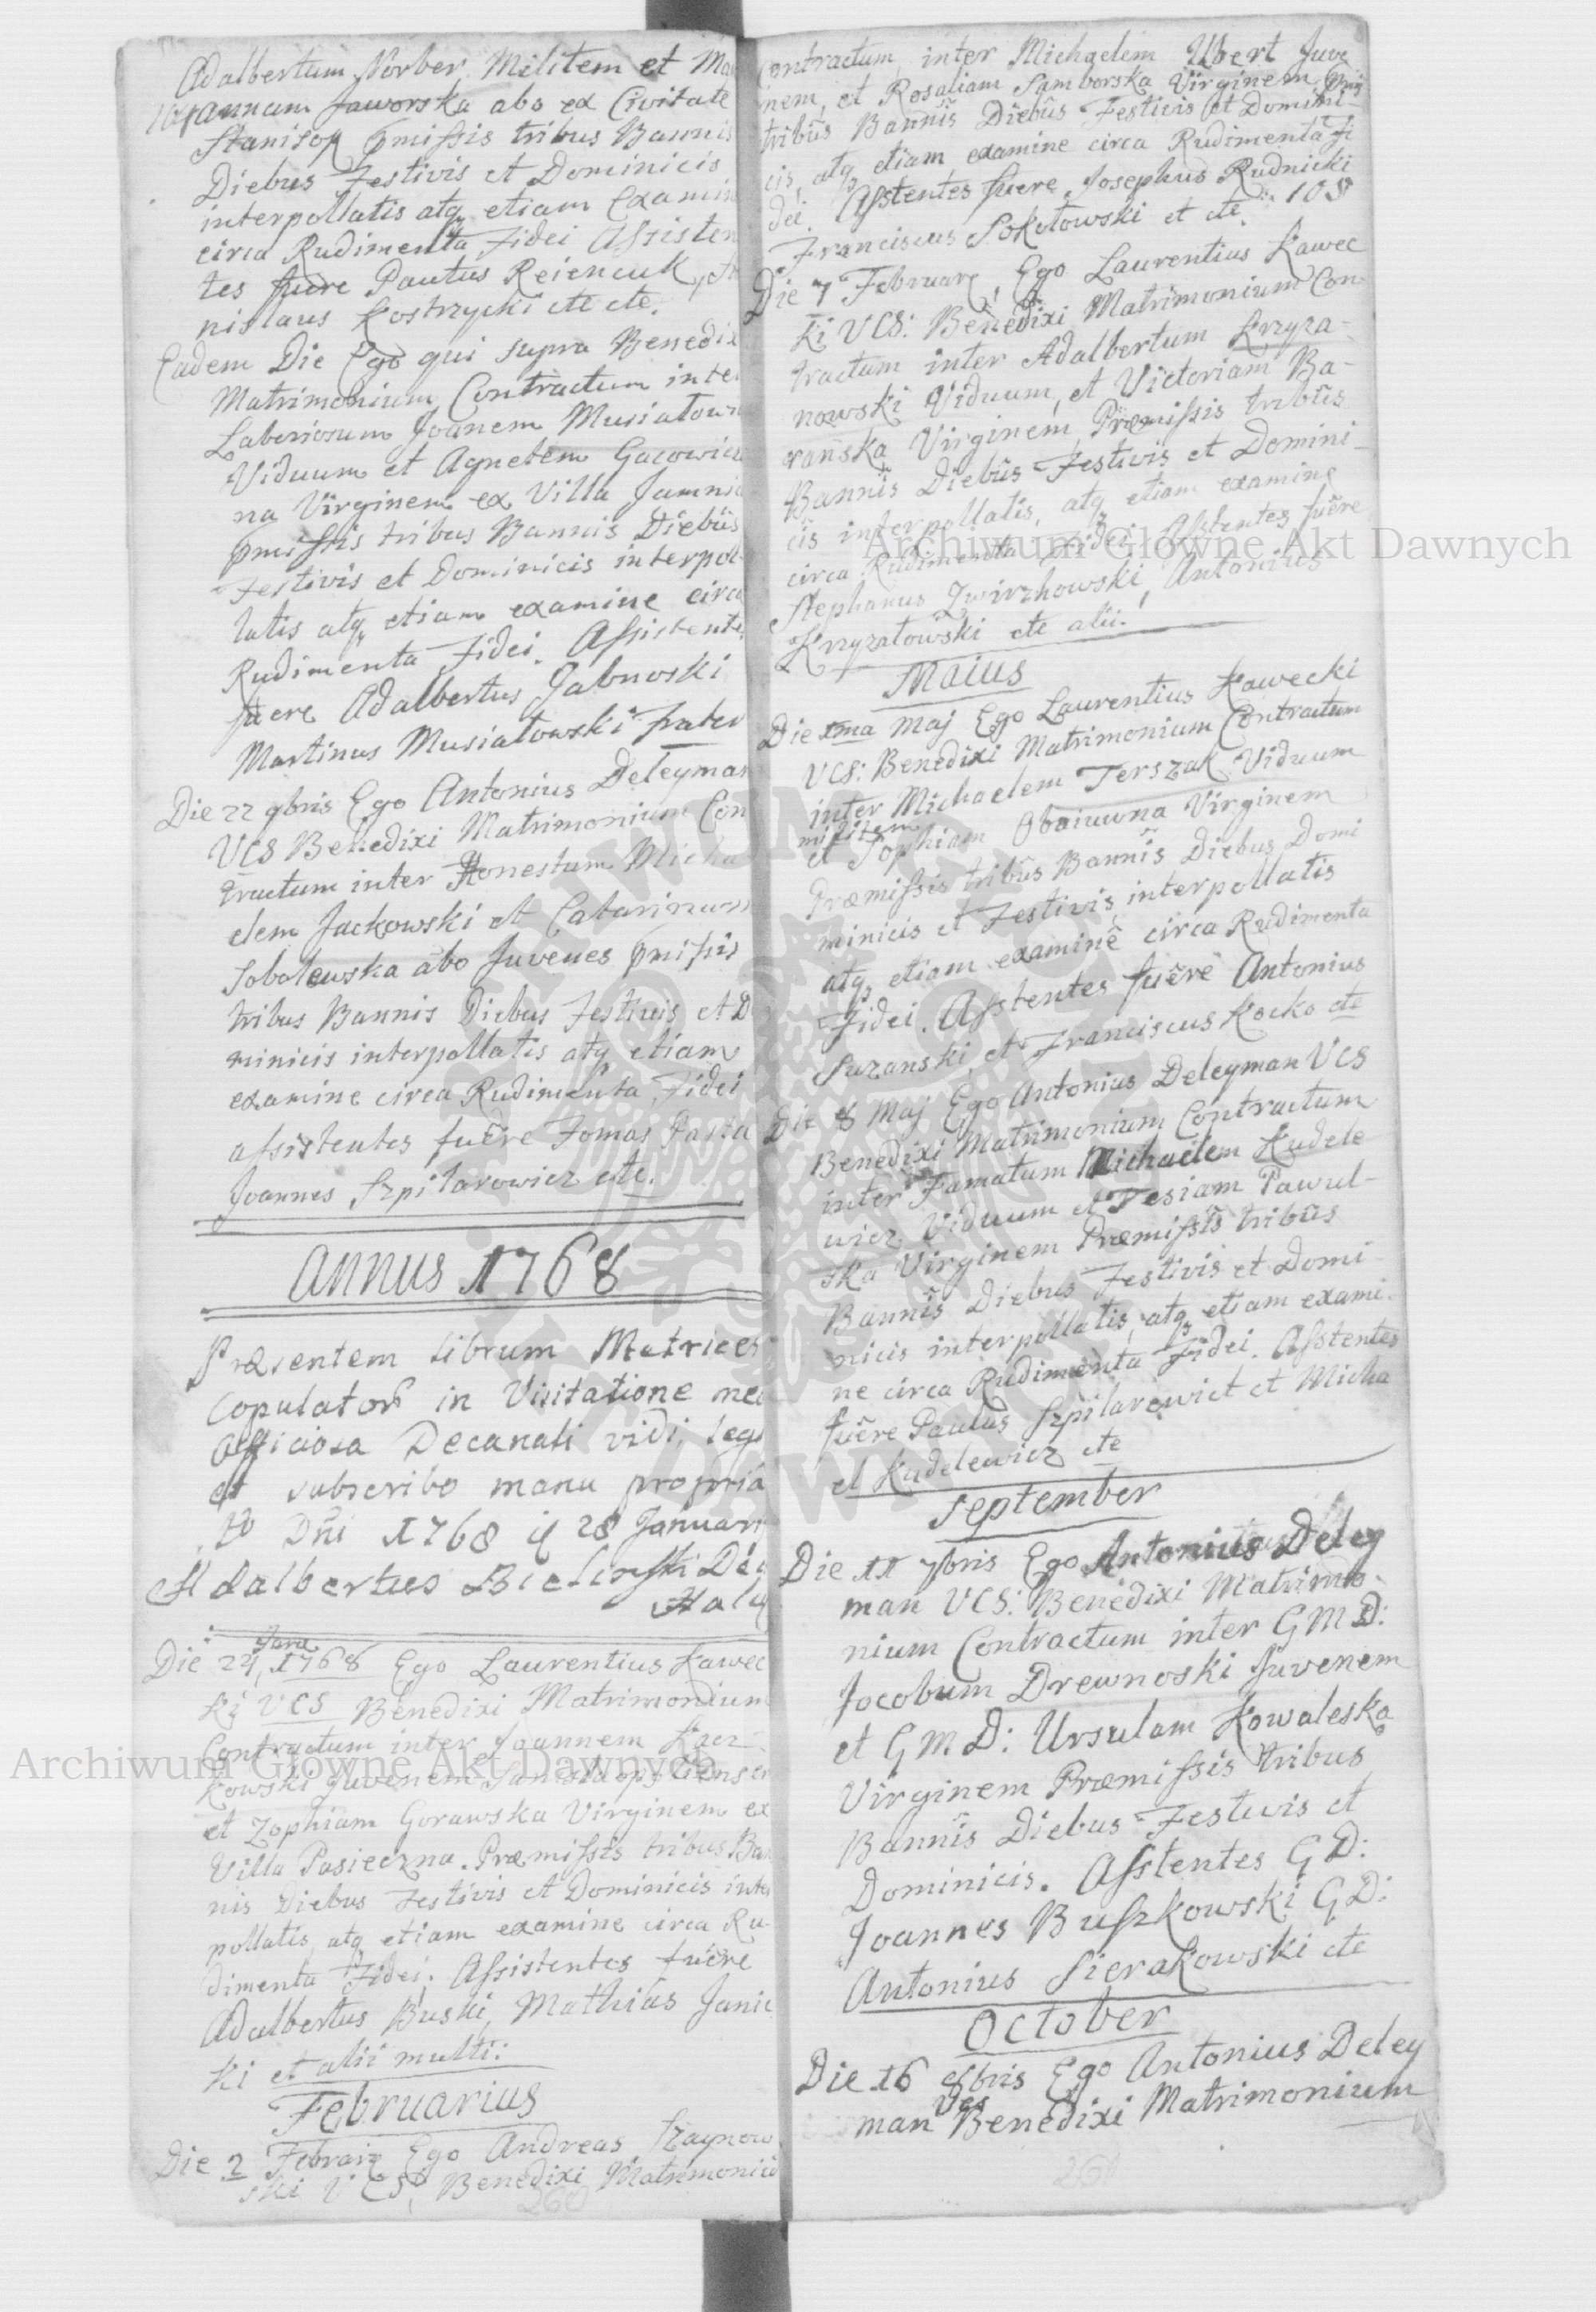 Adalbertum Norber Militem et Ma
ryannam Jaworska abo ex Civitate
Stanisop pmissis tribus Bannis
Diebus Festivis et Dominicis
interpollatis atq etiam Examin
circa Rudimenta Fidei Assisten
tes fuere Pautus Reiencuk, St
nislaus Kostrzycki etc etc.
Eadem Die Ego qui supra Benedix
Matrimonium Contractum inte
Laboriosum Joanem Musiatow
Viduum et Agnetem Gacowic
na Virginem ex Villa Jamni
pmissis tribus Bannis Diebus
Festivis et Dominicis interpol
latis atq etiam examine circa
Rudimenta Fidei. Assistente
fuere Adalbertus Jabnoski
Martinus Musiatowski frater
Die 22 9bris Ego Antonius Deleyman
VCS Benedixi Matrimonium Con
tractum inter Honestum Micha
elem Jackowski et Catarinam
Sobolewska abo Juvenes pmissis
tribus Bannis Diebus Festivis et D
minicis interpollatis atq etiam
examine circa Rudimenta Fidei
assistentes fuere Tomas Pasta
Joannes Szpilarowicz etc.
Annus 1768
Præsentem Librum Metrices
Copulator in Visitatione mea
Officiosa Decanali vidi, legi
et subscribo manu propria
Ao Dni 1768 28 Januarii
Adalbertus Bielinski Dec
Hali
Janu
Die 24, 1768 Ego Laurentius Kawec
ki VCS Benedixi Matrimonium
Contractum inter Joannem Kacz
kowski juvenem
et Zophiam Gorawska Virginem ex
Villa Pasieczna. Præmissis tribus Ban
nis Diebus Festivis et Dominicis inter
pollatis atq etiam examine circa Ru
dimenta Fidei. Assistentes fuere
Adalbertus Buski, Mathias Janic
ki et alii multi:
Februarius
Die 2 Febraiz Ego Andreas Szaynow
ski VCS, Benedixi Matrimoniu
260
Contractum inter Michaelem Ubert Juve
nem, et Rosaliam Samborska Virginem, pmis
tribus Bannis Diebus Festivis et Domini
cis, atq etiam examine circa Rudimenta Fi
dei. Asstentes fuere Josephus Rudnicki
Franciscus Sokotowski et etc. 108
Die 7 Februarz, Ego Laurentius Kawec
ki VCS: Benedixi Matrimonium Con
tractum inter Adalbertum Krzyza-
nowski Viduum, et Victoriam Ba-
ranska Virginem Præmissis tribus
Bannis Diebus Festivis et Domini-
cis interpollatis, atq etiam examine
circa Rudimenta Fidei. Asstentes fuere
Stephanus Zwirzhowski, Antonius
Krzyzatowski etc alii.
Maius
Die 1ma Maj Ego Laurentius Kawecki
VCS: Benedixi Matrimonium Contractum
inter Michaelem Terszak Viduum
militem
et Sophiam Obaiuwna Virginem
Præmissis tribus Bannis Diebus Domi
minicis et Festivis interpollatis
atq etiam examine circa Rudimenta
Fidei. Asstentes fuere Antonius
Suzanski, et Franciscus Kocko etc
Die 8 Maj Ego Antonius Deleyman VCS
Benedixi Matrimonium Contractum
inter Famatum Michaelem Kudele
wicz Viduum et Tesiam Pawul-
ska Virginem Præmissis tribus
Bannis Diebus Festivis et Domi
nicis interpollatis, atq etiam exami-
ne circa Rudimenta Fidei. Asstentes
fuere Paulus Szpilarewict et Micha
el Kudelewicz etc
September
Die 11 7bris Ego Antonius Deley
man VCS: Benedixi Matrimo-
nium Contractum inter GMD:
Jocobum Drewnoski Juvenem
et GMD: Ursulam Kowaleska
Virginem Præmissis tribus
Bannis Diebus Festivis et
Dominicis. Asstentes GD:
Joannes Buszkowski GD:
Antonius Sierakowski etc
October
Die 16 8bris Ego Antonius Deley
VCS
man Benedixi Matrimonium
261
Archiwum Główne Akt Dawnych
Archiwum Główne Akt Dawnych
ARCHIWUM GŁÓWNE AKT DAWNYCH